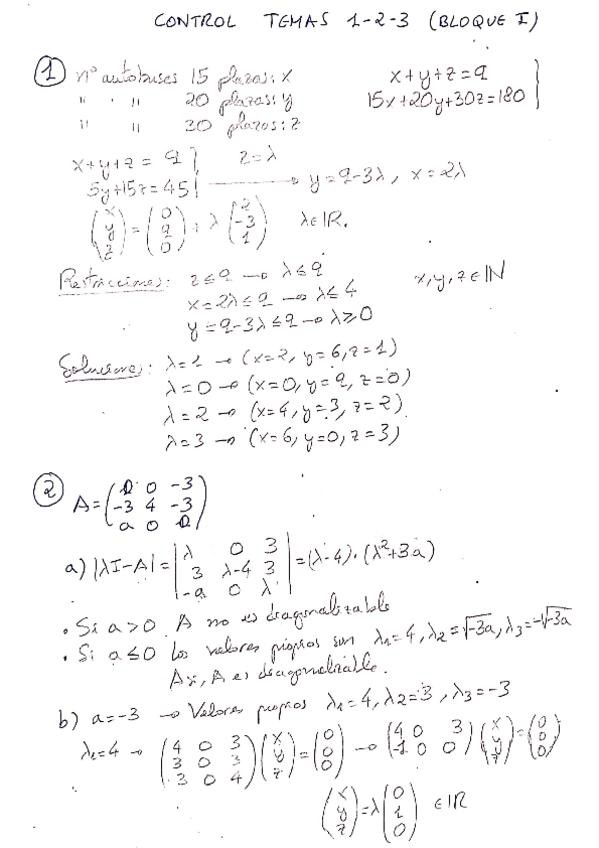 CONTROL TEMAS 1-2-3 (BLOQUE I)
① nº autobuses 15 plazas: x x+y+z=9
" " " 20 plazas: y 15x+20y+30z=180
" " 30 plazas: z
x+y+z=9 z=λ
5y+15z=45 → y=9-3λ, x=2λ
(x y z) = (0 9 0) + λ (2 -3 1) λ∈IR.
Restricciones: z≤9 → λ≤9 x,y,z∈IN
x=2λ≤9 → λ≤4
y=9-3λ≤9 → λ≥0
Soluciones: λ=1 → (x=2, y=6, z=1)
λ=0 → (x=0, y=9, z=0)
λ=2 → (x=4, y=3, z=2)
λ=3 → (x=6, y=0, z=3)
② A= (0 0 -3
-3 4 -3
a 0 0)
a) |λI-A| = |λ 0 3
3 λ-4 3
-a 0 λ| = (λ-4)·(λ²+3a)
• Si a>0 A no es diagonalizable
• Si a≤0 los valores propios son λ1=4, λ2=√-3a, λ3=-√-3a
A es diagonalizable.
b) a=-3 → Valores propios λ1=4, λ2=3, λ3=-3
λ1=4 → (4 0 3
3 0 3
3 0 4) (x y z) = (0 0 0) → (4 0 3
-1 0 0) (x y z) = (0 0 0)
(x y z) = λ (0 1 0) ∈IR